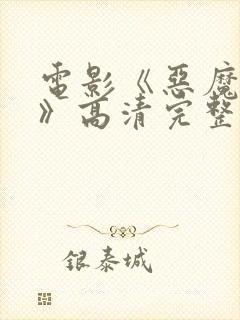 電影《惡魔
》高清完整
银泰城